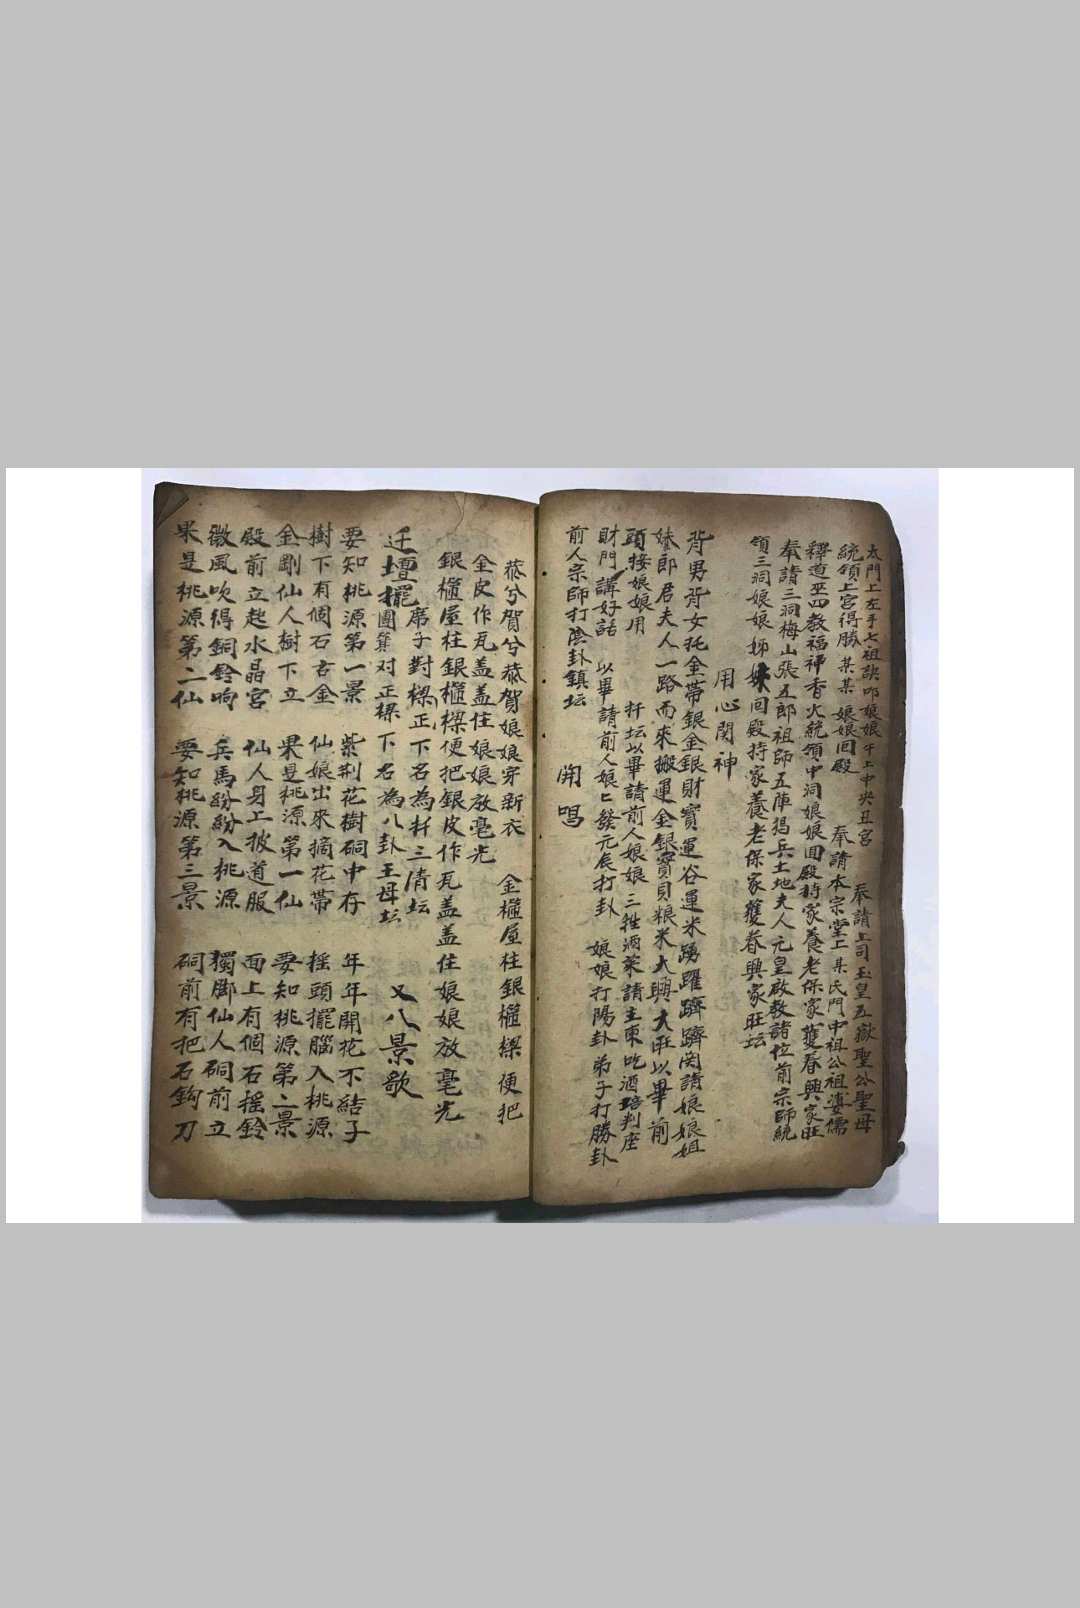 太門上左手七祖訣叩娘娘午上中央丑宮 奉請上司玉皇五嶽聖公聖母
統領上宮得勝某某娘娘回殿 奉請本宗堂上某氏門中祖公祖婆儒
釋道巫四教福神香火統領中洞娘娘回殿持家養老保家護眷興家旺
奉請三洞梅山張五郎祖師五陣猖兵土地夫人元皇啟教諸位前宗師統
領三洞娘娘姊妹回殿持家養老保家護眷興家旺坛
用心関神
背男背女托金帶銀金銀財寳運谷運米踴躍躋躋関請娘娘姐
妹郎君夫人一路而來搬運金銀寳貝粮米大興大旺以畢前
頭接娘娘用 扦坛以畢請前人娘娘三牲酒菜請主東吃酒陪判座
財門講好話 以畢請前人娘〻發元辰打卦 娘娘打陽卦弟子打勝卦
前人宗師打陰卦鎮坛 開唱
恭兮賀兮恭賀娘娘穿新衣 金櫃屋柱銀櫃樑便把
金皮作瓦盖盖住娘娘放毫光
銀櫃屋柱銀櫃樑便把銀皮作瓦盖盖住娘娘放毫光
席子對樑正下名為扦三清坛
迁壇擺團對正樑下名為八卦王母坛 又八景歌
要知桃源第一景 紫荆花樹硐中存 年年開花不結子
樹下有個石古金 仙娘出來摘花帶 摇頭擺腦入桃源
金剛仙人樹下立 果是桃源第一仙 要知桃源第二景
殿前立起水晶宮 仙人身上披道服 面上有個石摇鈴
微風吹得銅鈴响 兵馬紛紛入桃源 獨脚仙人硐前立
果是桃源第二仙 要知桃源第三景 硐前有把石鈎刀